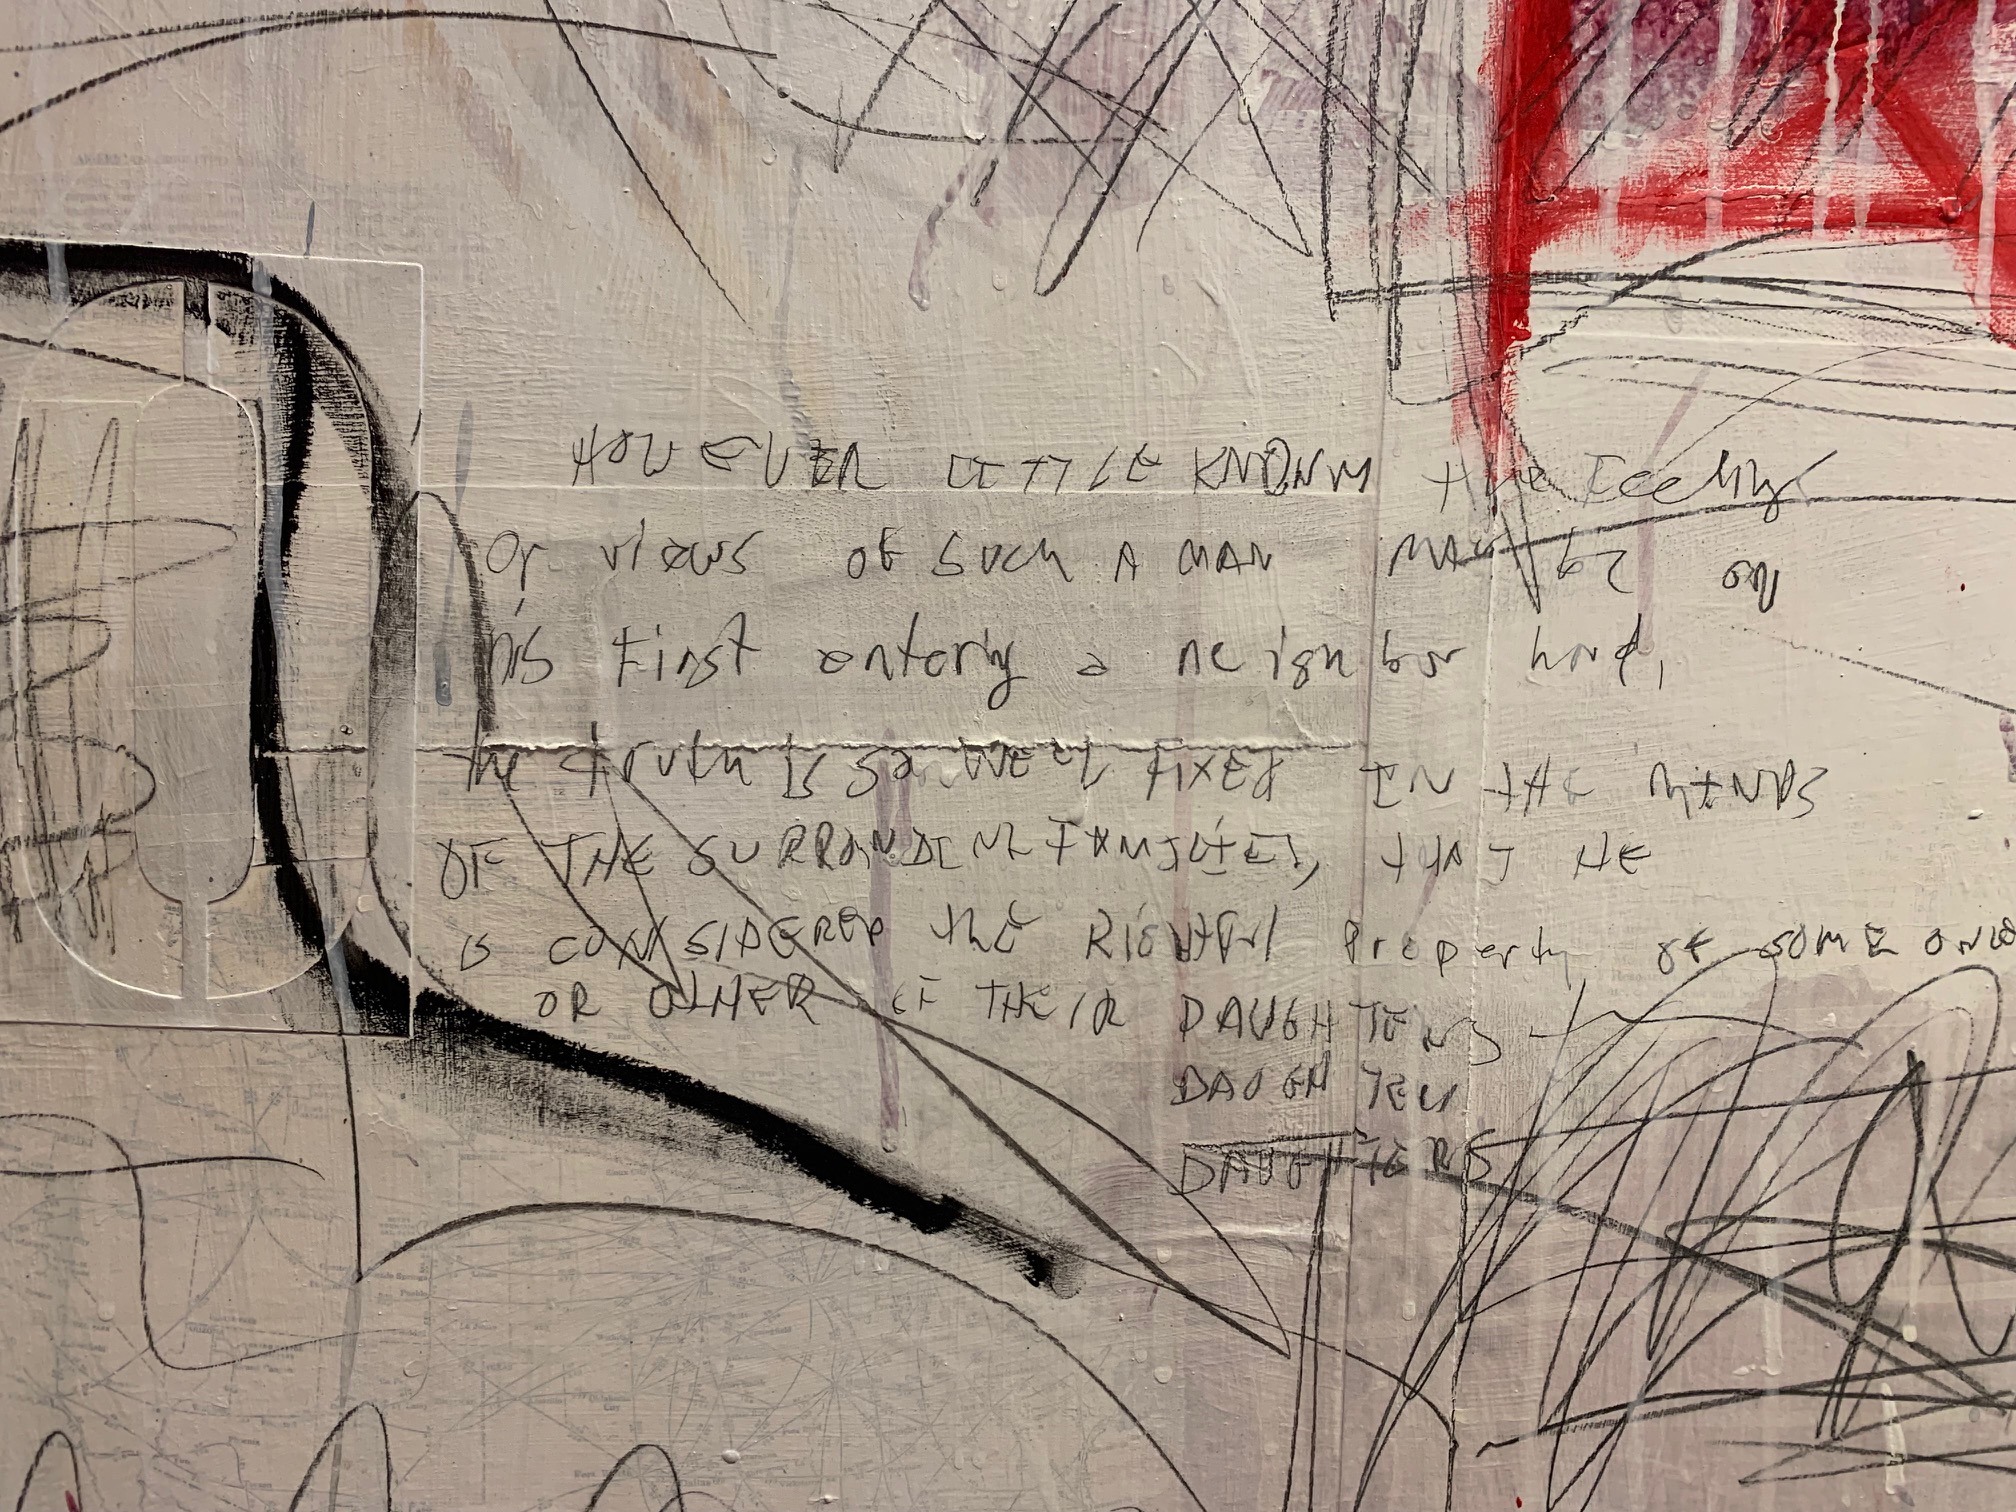 HOWEVER LITTLE KNOWN the feelings
or views of such A MAN MAY be on
his first entering a neighbor hood,
the truth is so WELL FIXED IN THE MINDS
OF THE SURRONDING FAMILIES, THAT HE
is CONSIDERED the RIGHTFUl Property of SOME ONE
OR OTHER OF THEIR DAUGHTERS
DAUGHTER
DAUGHTERS